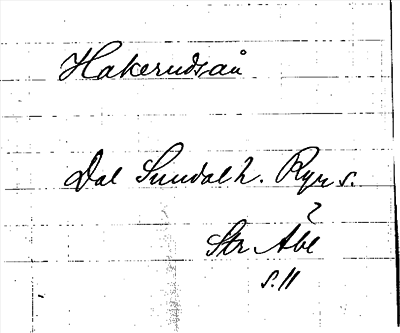 Hakerudsån
Dal Sundal h. Ryr s.
?
Str Åbe
s. 11